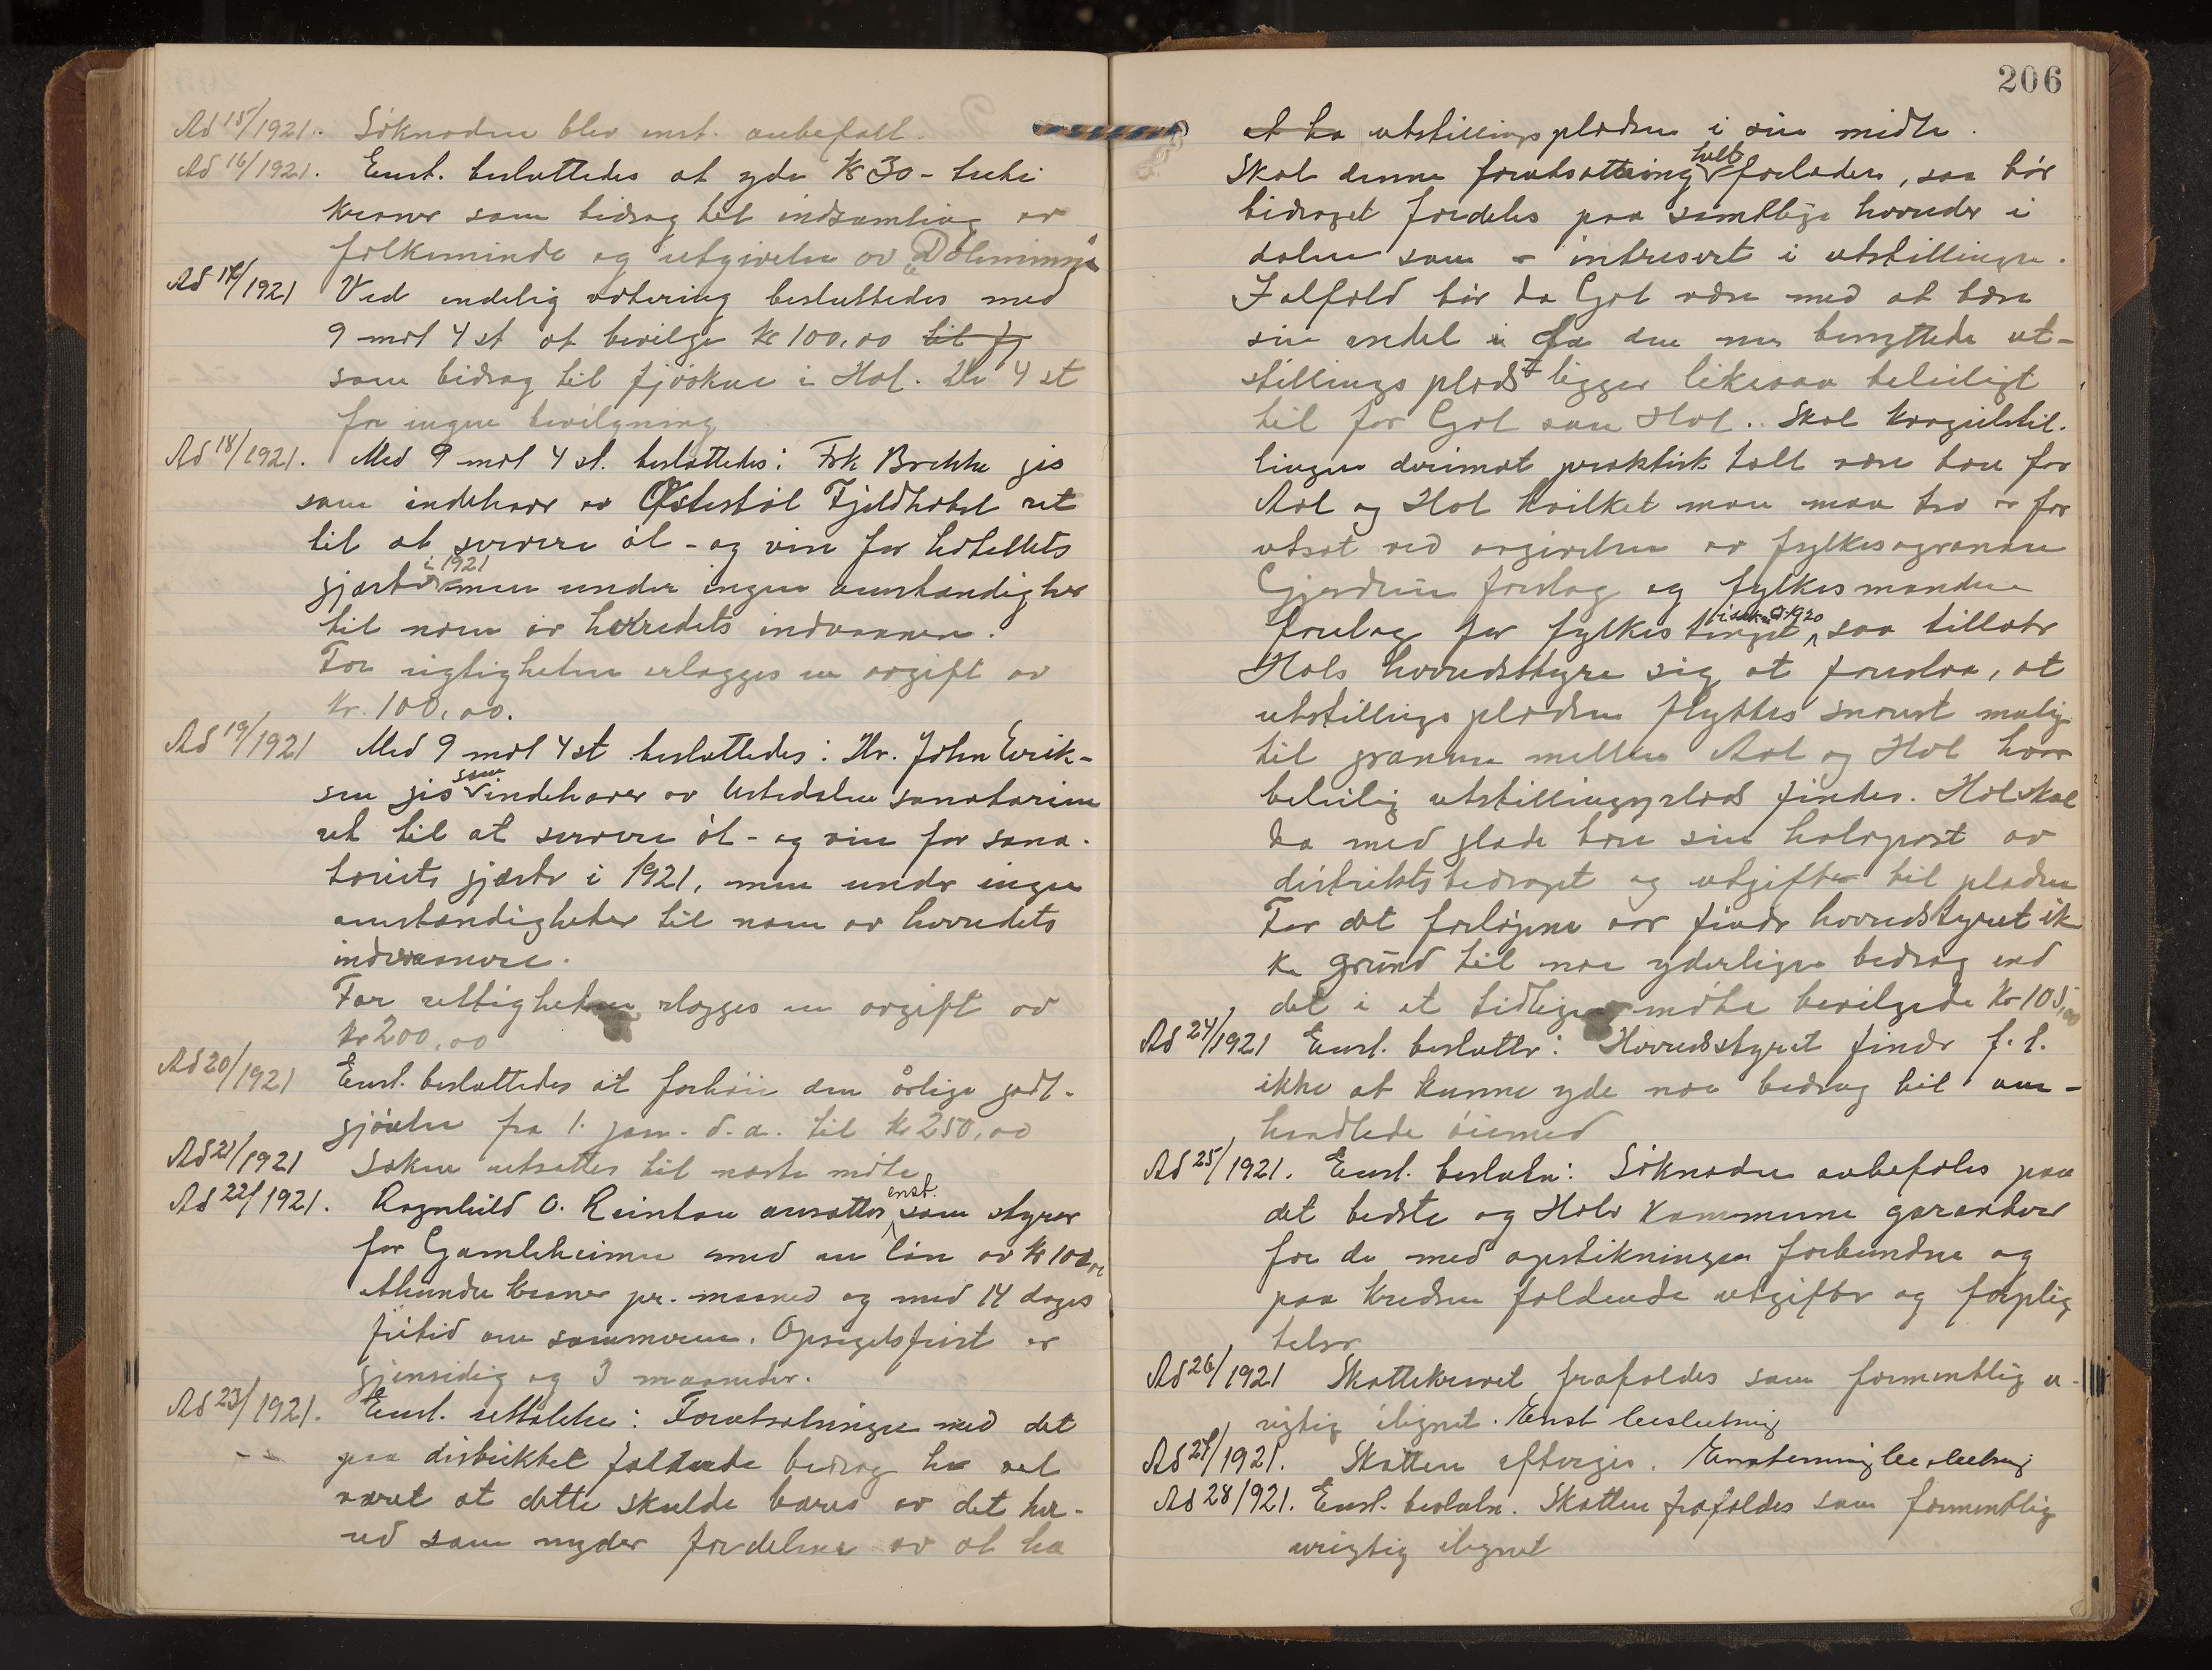 Ad 15/1921. Søknaden blev enst. anbefalt.
Ad 16/1921. Enst. besluttedes at yde kr 30 - treti
kroner som bidrag til indsamling av
folkeminde og utgivelse av "Dølaminne"
Ad 17/1921 Ved endelig votering besluttedes med
9 mot 4 st at bevilge kr 100,00 til fj
som bidrag til fjøskue i Hol. De 4 st
for ingen bevilgning
Ad 18/1921. Med 9 mot 4 st. besluttedes: Frk Brekke gis
som indehaver av Østestøl Fjeldhotel ret
til at servere øl - og vin for hotellets
gjæster i 1921 men under ingen omstændigher
til noen av herredets indvaanere.
For rigtigheten erlægges en avgift av
kr. 100,00.
Ad 19/1921 Med 9 mot 4 st besluttedes: Hr. John Erik-
sen gis som indehaver av Ustedalen sanatorium
ret til at servere øl - og vin for sana-
toriets gjæster i 1921, men under ingen
omstændigheter til noen av herredets
indvaanere.
For rettigheten erlægges en avgift av
kr 200,00
Ad 20/1921 Enst. besluttedes at forhøie den årlige godt-
gjørelse fra 1. jan. d.a. til kr 250,00
Ad 21/1921 Saken utsættes til næste møte
Ad 22/1921. Ragnhild O. Reinton ansættes enst. som styrer
for Gamleheimen med en løn av kr 100,00
etthundre kroner pr. maaned og med 14 dages
fritid om sommeren. Opsigelsfrist er
gjensidig og 3 maaneder.
Ad 23/1921. Enst. uttalelse: Forutsætningen med det
paa distriktet faldende bedrag har vel
været at dette skulde bæres av det her-
red som nyder fordelene av at ha
206
at ha utstillingspladsen i sin midte.
Skal denne forutsætning helt forlades, saa bør
bidraget fordeles paa samtlige herreder i
dalen som er intresert i utstillingen.
I alfald bør da Gol være med at bære
sin andel i da den nu benyttede ut-
stillingsplads ligger likesaa beleiligt
til for Gol som Hol. Skal kvægutstil-
lingen derimot praktisk talt være bare for
Aal og Hol hvilket man maa tro er for
utsat ved avgivelsen av fylkesagronom
Gjerdrum forslag og fylkesmandens
forelæg for fylkestinget i 1920 saa tillater
Hols herredsstyre sig at foreslaa, at
utstillingspladsen flyttes snarest mulig
til grænsen mellem Aal og Hol hvor
beleilig utstillingsplads findes. Hol skal
da med glæde bære sin halvpart av
distriktsbedraget og utgifter til pladsen
For det forløpne aar finder herredsstyret ik
ke grund til noe yderligere bedrag end
det i et tidligere møte bevilgede kr 105,00
Ad 24/1921 Enst. besluttn: Herredsstyret finder f. t.
ikke at kunne yde noe bedrag til om-
handlede øiemed
Ad 25/1921. Enst. besluttn: Søknaden anbefales paa
det bedste og Hols kommune garanterer
for de med opstikningen forbundne og
paa kredsen faldende utgifter og forplig
telser
Ad 26/1921 Skattekravet frafaldes som formentlig u-
rigtig ilignet. Enst beslutning
Ad 27/1921. Skatten eftergis. Enstemmig beslutning
Ad 28/1921. Enst. besluttn. Skatten frafaldes som formentlig
urigtig ilignet